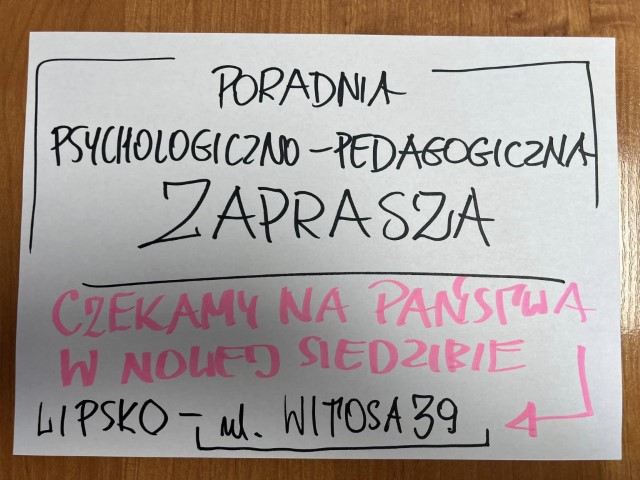 PORADNIA
PSYCHOLOGICZNO-PEDAGOGICZNA
ZAPRASZA
CZEKAMY NA PAŃSTWA
W NOWEJ SIEDZIBIE
LIPSKO - ul. WITOSA 39